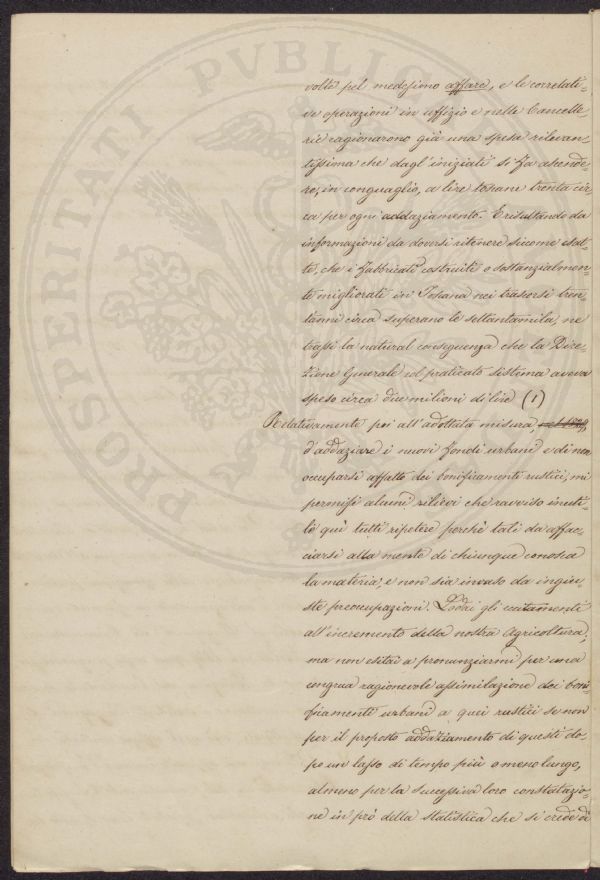 PROSPERITATI PVBLIC
volte pel medesimo affare, e le correlati=
ve operazioni in uffizio e nelle Cancelle=
rie cagionarono già una spesa rilevan=
tissima che dagl'iniziati si fa ascende=
re, in conguaglio, a lire toscane trenta cir=
ca per ogni addaziamento. E risultando da
informazioni da doversi ritenere siccome esat=
te, che i fabbricati costruiti o sostanzialmen=
te migliorati in Toscana nei trascorsi tren=
tanni circa superano le settantamila, ne
la natural conseguenza che la Dire=
zione Generale col praticato sistema aveva
speso circa due milioni di lire (1)
Relativamente poi all'adottata misura,
d'addaziare i nuovi fondi urbani e di non
occuparsi affatto dei bonificamenti rustici, mi
permisi alcuni rilievi che ravviso inuti=
le quì tutti ripetere perchè tali da affac=
ciarsi alla mente di chiunque conosca
la materia, e non sia invaso da ingiu=
ste preoccupazioni. Lodai gli eccitamenti
all'incremento della nostra Agricoltura,
ma non esitai a pronunziarmi per una
congrua ragionevole assimilazione dei boni=
ficamenti urbani a quei rustici se non
per il proposto addaziamento di questi do=
po un lasso di tempo più o meno lungo,
almeno per la successiva loro constatazio=
ne in prò della statistica che si crede di